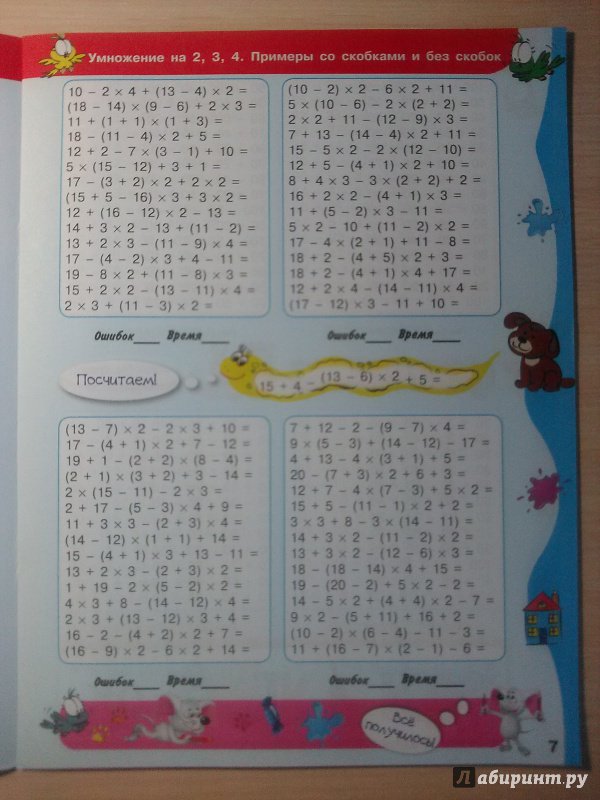 Умножение на 2, 3, 4. Примеры со скобками и без скобок
10 – 2 × 4 + (13 – 4) × 2 =
(18 – 14) × (9 – 6) + 2 × 3 =
11 + (1 + 1) × (1 + 3) =
18 – (11 – 4) × 2 + 5 =
12 + 2 – 7 × (3 – 1) + 10 =
5 × (15 – 12) + 3 + 1 =
17 – (3 + 2) × 2 + 2 × 2 =
(15 + 5 – 16) × 3 + 3 × 2 =
12 + (16 – 12) × 2 – 13 =
14 + 3 × 2 – 13 + (11 – 2) =
13 + 2 × 3 – (11 – 9) × 4 =
17 – (4 – 2) × 3 + 4 – 11 =
19 – 8 × 2 + (11 – 8) × 3 =
15 + 2 × 2 – (13 – 11) × 4 =
2 × 3 + (11 – 3) × 2 =
Ошибок____ Время____
(10 – 2) × 2 – 6 × 2 + 11 =
5 × (10 – 6) – 2 × (2 + 2) =
2 × 2 + 11 – (12 – 9) × 3 =
7 + 13 – (14 – 4) × 2 + 11 =
15 – 5 × 2 – 2 × (12 – 10) =
12 + 5 – (4 + 1) × 2 + 10 =
8 + 4 × 3 – 3 × (2 + 2) + 2 =
16 + 2 × 2 – (4 + 1) × 3 =
11 + (5 – 2) × 3 – 11 =
5 × 2 – 10 + (11 – 2) × 2 =
17 – 4 × (2 + 1) + 11 – 8 =
18 + 2 – (4 + 5) × 2 + 3 =
18 + 2 – (4 + 1) × 4 + 17 =
12 + 2 × 4 – (14 – 11) × 4 =
(17 – 12) × 3 – 11 + 10 =
Ошибок____ Время____
Посчитаем!
15 + 4 – (13 – 6) × 2 + 5 =
(13 – 7) × 2 – 2 × 3 + 10 =
17 – (4 + 1) × 2 + 7 – 12 =
19 + 1 – (2 + 2) × (8 – 4) =
(2 + 1) × (3 + 2) + 3 – 14 =
2 × (15 – 11) – 2 × 3 =
2 + 17 – (5 – 3) × 4 + 9 =
11 + 3 × 3 – (2 + 3) × 4 =
(14 – 12) × (1 + 1) + 14 =
15 – (4 + 1) × 3 + 13 – 11 =
13 + 2 × 3 – (2 + 3) × 2 =
1 + 19 – 2 × (5 – 2) × 2 =
4 × 3 + 8 – (14 – 12) × 4 =
2 × 3 + (13 – 12) × 3 + 4 =
16 – 2 – (4 + 2) × 2 + 7 =
(16 – 9) × 2 – 6 × 2 + 14 =
Ошибок____ Время____
7 + 12 – 2 – (9 – 7) × 4 =
9 × (5 – 3) + (14 – 12) – 17 =
4 + 13 – 4 × (3 + 1) + 5 =
20 – (7 + 3) × 2 + 6 + 3 =
12 + 7 – 4 × (7 – 3) + 5 × 2 =
15 + 5 – (11 – 1) × 2 + 2 =
3 × 3 + 8 – 3 × (14 – 11) =
14 + 3 × 2 – (11 – 2) × 2 =
13 + 3 × 2 – (12 – 6) × 3 =
18 – (18 – 14) × 4 + 15 =
19 – (20 – 2) + 5 × 2 – 2 =
14 – 5 × 2 + (4 + 4) × 2 – 7 =
9 × 2 – (5 + 11) + 16 + 2 =
(10 – 2) × (6 – 4) – 11 – 3 =
11 + (16 – 7) × (2 – 1) – 6 =
Ошибок____ Время____
Всё
получилось!
7
Лабиринт.ру